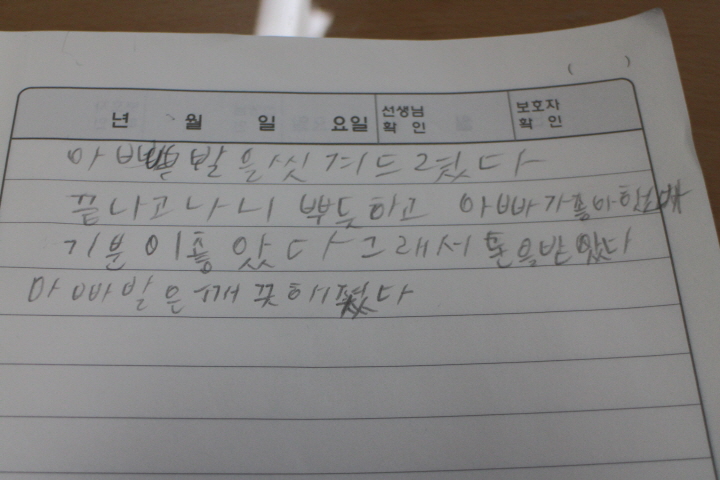 ( )
년 월 일 요일 선생님 확 인 보호자 확 인
아빠발을씻겨드렸다
끝나고나니 뿌듯하고 아빠가좋아하
기분이좋았다그래서 돈을받았다
아빠발은깨끗해졌다